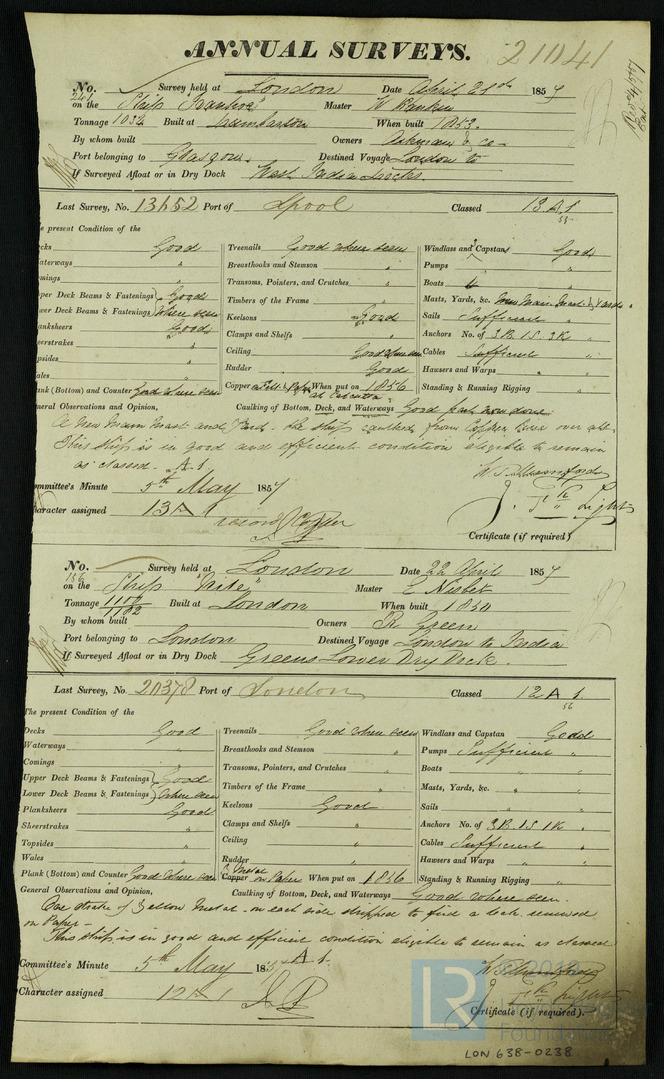 ANNUAL SURVEYS. 21041
No. 241 Survey held at London Date April 21st 1857
on the Ship Master W Rankin
Tonnage 1034 Built at Dumbarton When built 1853.
By whom built Owners & Co
Port belonging to Glasgow Destined Voyage London to
If Surveyed Afloat or in Dry Dock West India Docks.
Last Survey, No. 13652 Port of Lpool Classed 13 A 1
55
present Condition of the
Good Treenails Good where seen Windlass and Capstan Good
aterways " Breasthooks and Stemson " Pumps "
omings " Transoms, Pointers, and Crutches " Boats "
per Deck Beams & Fastenings Good Timbers of the Frame " Masts, Yards, &c. New Main Mast & Yard
wer Deck Beams & Fastenings where seen Keelsons Good Sails Sufficient
anksheers Good Clamps and Shelfs " Anchors No. of 3B. 1S. 2K "
eerstrakes " Ceiling Good where seen Cables Sufficient "
opsides " Rudder Good Hawsers and Warps " "
ales " Copper When put on 1856 Standing & Running Rigging "
ank (Bottom) and Counter Good where seen at Calcutta
neral Observations and Opinion, Caulking of Bottom, Deck, and Waterways Good part now done.
A New Main Mast and Yard. The Ship caulked from Copper over all.
This ship is in good and efficient condition eligible to remain
as classed. A.1
ommittee's Minute 5th May 1857
haracter assigned 13A1
record Copper
Certificate (if required)
No. 186 Survey held at London Date 22 April 1857
on the Ship "Nile" Master E Nisbet
Tonnage 1102 Built at London When built 1850
By whom built Owners R Green
Port belonging to London Destined Voyage London to India
If Surveyed Afloat or in Dry Dock Greens Lower Dry Dock.
Last Survey, No. 20378 Port of London Classed 12 A 1
56
The present Condition of the
Decks Good Treenails Good where seen Windlass and Capstan Good
Waterways " Breasthooks and Stemson " Pumps Sufficient "
Comings " Transoms, Pointers, and Crutches " Boats "
Upper Deck Beams & Fastenings Good Timbers of the Frame " Masts, Yards, &c. " "
Lower Deck Beams & Fastenings where seen Keelsons Good Sails "
Planksheers Good Clamps and Shelfs " Anchors No. of 3B. 1S. 1K "
Sheerstrakes " Ceiling " Cables Sufficient "
Topsides " Rudder " Hawsers and Warps " "
Wales " Copper Y Metal on Paper When put on 1856 Standing & Running Rigging "
Plank (Bottom) and Counter Good where seen
General Observations and Opinion, Caulking of Bottom, Deck, and Waterways Good where seen.
One strake of Yellow Metal on each side stripped to find a leak, renewed
on Paper.
This ship is in good and efficient condition eligible to remain as classed
A.1.
Committee's Minute 5th May 1857
Character assigned 12A1
Certificate (if required).
LR
© 2019
Foundation
LON 638-0238